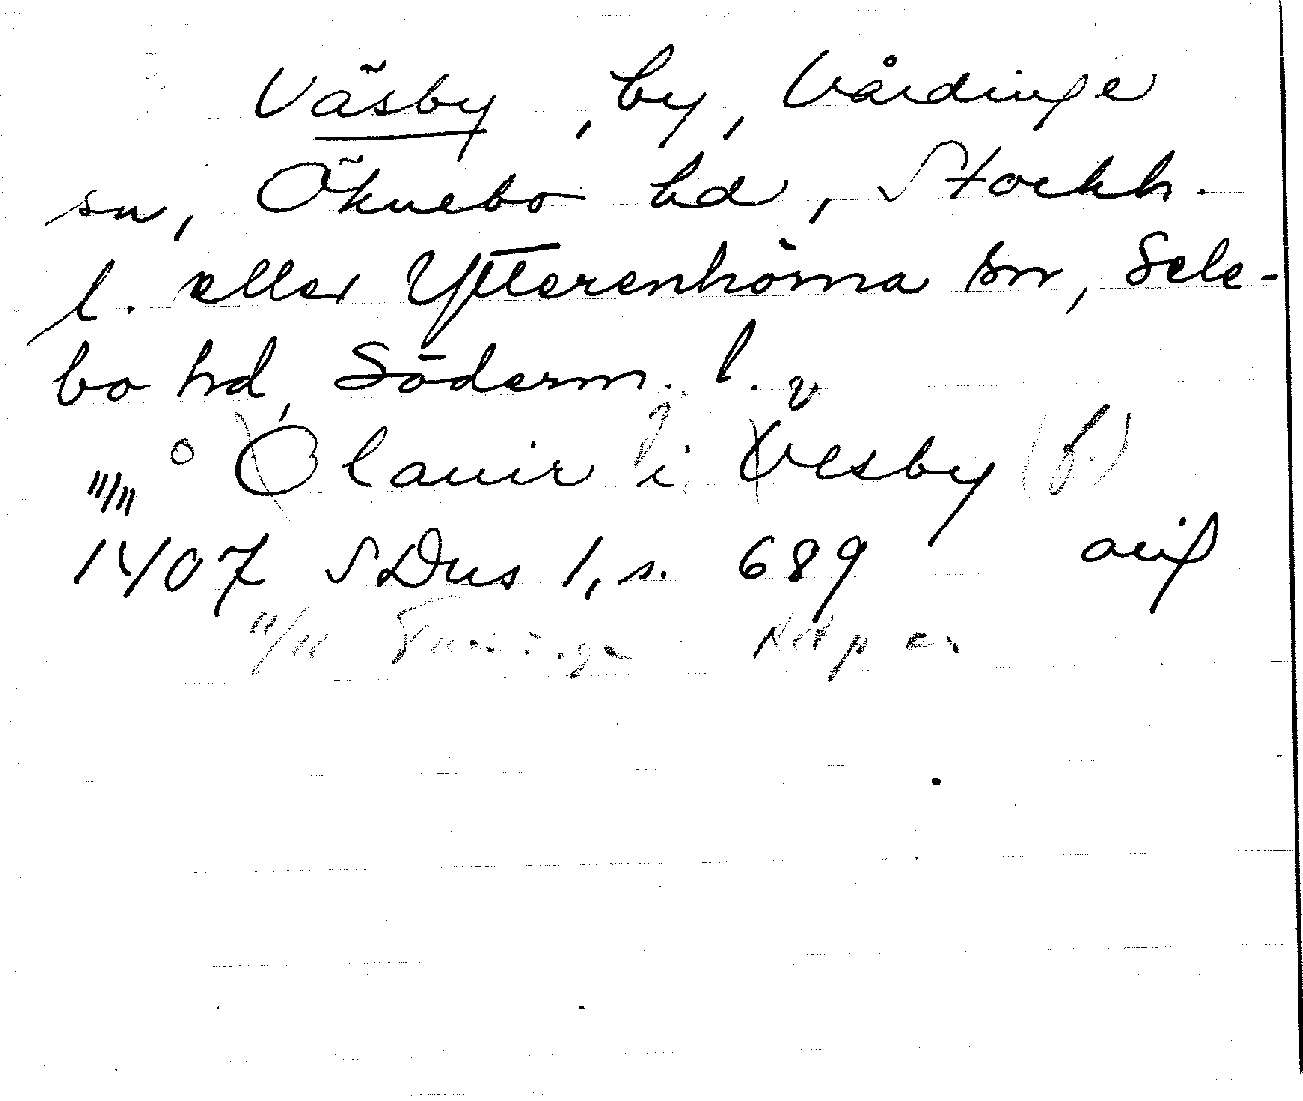 Väsby, by, Vårdinge
sn, Öknebo hd, Stockh.
l. eller Ytterenhörna sn, Sele-
bo hd, Söderm. l.
" / " Olauir i Vesby (f.)
1407 SDns 1, s. 689 orig
" / "